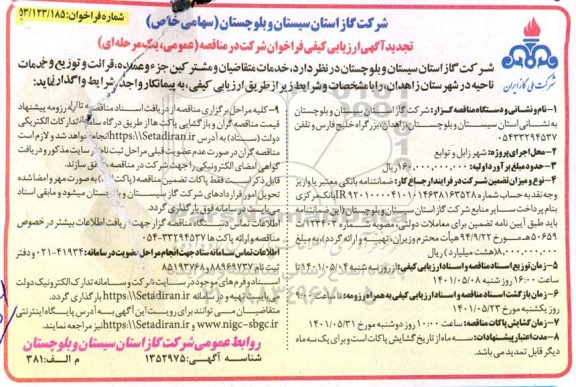 شماره فراخوان: ۵۳/۱۲۳/۱۸۵
شرکت گاز استان سیستان و بلوچستان (سهامی خاص)
تجدید آگهی ارزیابی کیفی فراخوان شرکت در مناقصه (عمومی، یک مرحله ای)
شرکت ملی گاز ایران
شرکت گاز استان سیستان و بلوچستان در نظر دارد، خدمات متقاضیان و مشترکین جزء و عمده، قرائت و توزیع و خدمات
ناحیه در شهرستان زاهدان، را با مشخصات و شرایط زیر از طریق ارزیابی کیفی، به پیمانکار واجد شرایط واگذار نماید:
۱- نام و نشانی دستگاه مناقصه گزار: شرکت گاز استان سیستان و بلوچستان
به نشانی استان سیستان و بلوچستان، زاهدان، بزرگراه خلیج فارس و تلفن
۰۵۴۳۳۲۹۴۵۳۷
۲- محل اجرای پروژه: شهر زابل و توابع
۳- حدود مبلغ برآورد اولیه: ریال
۴- نوع و میزان تضمین شرکت در فرایند ارجاع کار: ضمانتنامه بانکی معتبر یا واریز
وجه نقد به حساب شماره بانک مرکزی
بنام پرداخت سایر منابع شرکت گاز استان سیستان و بلوچستان (این ضمانتنامه
باید طبق آیین نامه تضمین برای معاملات دولتی، مصوبه شماره ۱۲۳۴۰۲/ت
۵۰۶۵۹ه مورخ ۹۴/۹/۲۲ هیأت محترم وزیران، تهیه و ارائه گردد)، به مبلغ
۸,۰۰۰,۰۰۰,۰۰۰ (هشت میلیارد) ریال
۵- زمان توزیع اسناد مناقصه و اسناد ارزیابی کیفی: از روز سه شنبه ۱۴۰۱/۰۵/۰۴ تا
ساعت ۱۶:۰۰ روز شنبه مورخ ۱۴۰۱/۰۵/۰۸
۶- زمان بازگشت اسناد مناقصه و اسناد ارزیابی کیفی به همراه رزومه: تا ساعت ۹:۰۰
روز یکشنبه مورخ ۱۴۰۱/۰۵/۲۳
۷- زمان گشایش پاکات مناقصه: ساعت ۱۰:۰۰ روز دوشنبه مورخ ۱۴۰۱/۰۵/۳۱
۸- مدت اعتبار پیشنهادات: سه ماه از تاریخ گشایش پاکات است و برای یک سه ماه
دیگر قابل تمدید می باشد.
۹- کلیه مراحل برگزاری مناقصه از دریافت اسناد مناقصه تا ارائه رزومه پیشنهاد
قیمت مناقصه گران و بازگشایی پاکت ها از طریق درگاه سامانه تدارکات الکترونیکی
دولت (ستاد) به آدرس https:\\Setadiran.ir انجام خواهد شد و لازم است
مناقصه گران در صورت عدم عضویت قبلی مراحل ثبت نام در سایت مذکور و دریافت
گواهی امضای الکترونیکی را جهت شرکت در مناقصه محقق سازند.
قابل ذکر است فقط پاکات تضمین مناقصه (پاکت الف) به صورت مهر و امضا شده
تحویل امور قراردادهای شرکت گاز سیستان و بلوچستان میشود و مابقی اسناد
می بایست در سامانه فوق بارگذاری گردد.
اطلاعات تماس دستگاه مناقصه گزار جهت دریافت اطلاعات بیشتر در خصوص
مناقصه و ارائه پاکات ها: ۰۵۴-۳۳۲۹۴۵۳۷
اطلاعات تماس سامانه ستاد جهت انجام مراحل عضویت در سامانه: ۴۱۹۳۴-۰۲۱ و دفتر
ثبت نام ۸۸۹۶۹۷۳۷ و ۸۵۱۹۳۷۶۸
اسناد و فرم های موجود در سایت شرکت و سامانه تدارک الکترونیک دولت
به آدرس https:\\Setadiran.ir بارگذاری گردد.
متقاضیان می توانند برای رویت این آگهی به آدرس پایگاه اینترنتی
www.nigc-sbgc.ir و https:\\Setadiran.ir نیز مراجعه نمایند.
روابط عمومی شرکت گاز استان سیستان و بلوچستان
شناسه آگهی: ۱۳۵۲۹۷۵
م الف: ۳۸۱